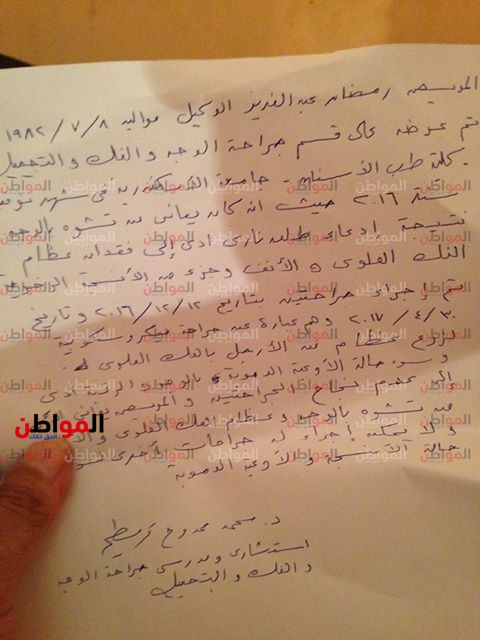 المريض رمضان عبد العزيز الوكيل مواليد ٨ / ٧ / ١٩٨٢
تم عرضه على قسم جراحة الوجه و الفك و التجميل
بكلية طب الأسنان - جامعة الاسكندرية فى شهر
سنة ٢٠١٦ حيث انه كان يعانى من تشوه بالوجه
نتيجة إدعاء طلق نارى ادى إلى فقدان عظام
الفك العلوى و الأنف و جزء من الأنسجة الرخوة
تم إجراء جراحتين بتاريخ ١٢ / ١٢ / ٢٠١٦ و تاريخ
٣٠ / ٤ / ٢٠١٧ وهم عبارة عن جراحة ميكروسكوبية
لزرع عظام من الأرجل بالفك العلوى
و سوء حالة الأوعية الدموية بالوجه و الرقبة ادى
إلى عدم نجاح الجراحتين و المريض يعانى
من تشوه بالوجه و عظام الفك العلوى
و لا يمكن إجراء له جراحات أخرى
حالة الأنسجة و الأوعية الدموية
د. محمد ممدوح
استشارى و مدرس جراحة الوجه
و الفك و التجميل
المواطن